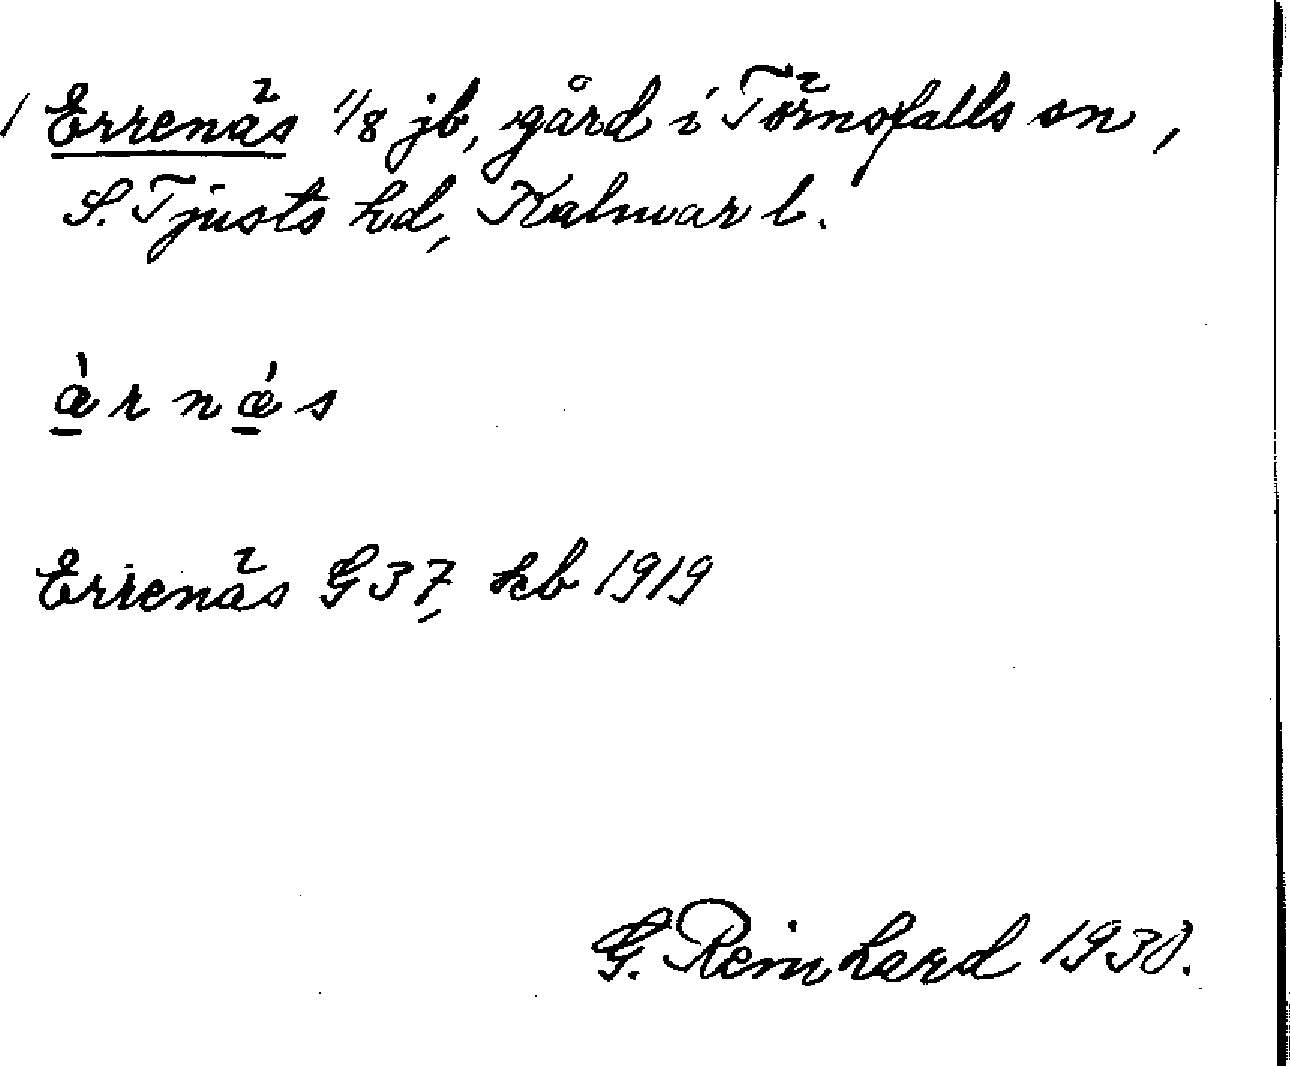 Errenäs 1/8 jb, gård i Törnsfalls sn,
S. Tjusts hd, Kalmar l.
æ̠̀ r n ǽ̠ s
Errenäs G 37, kb 1919
G. Reinhard 1930.